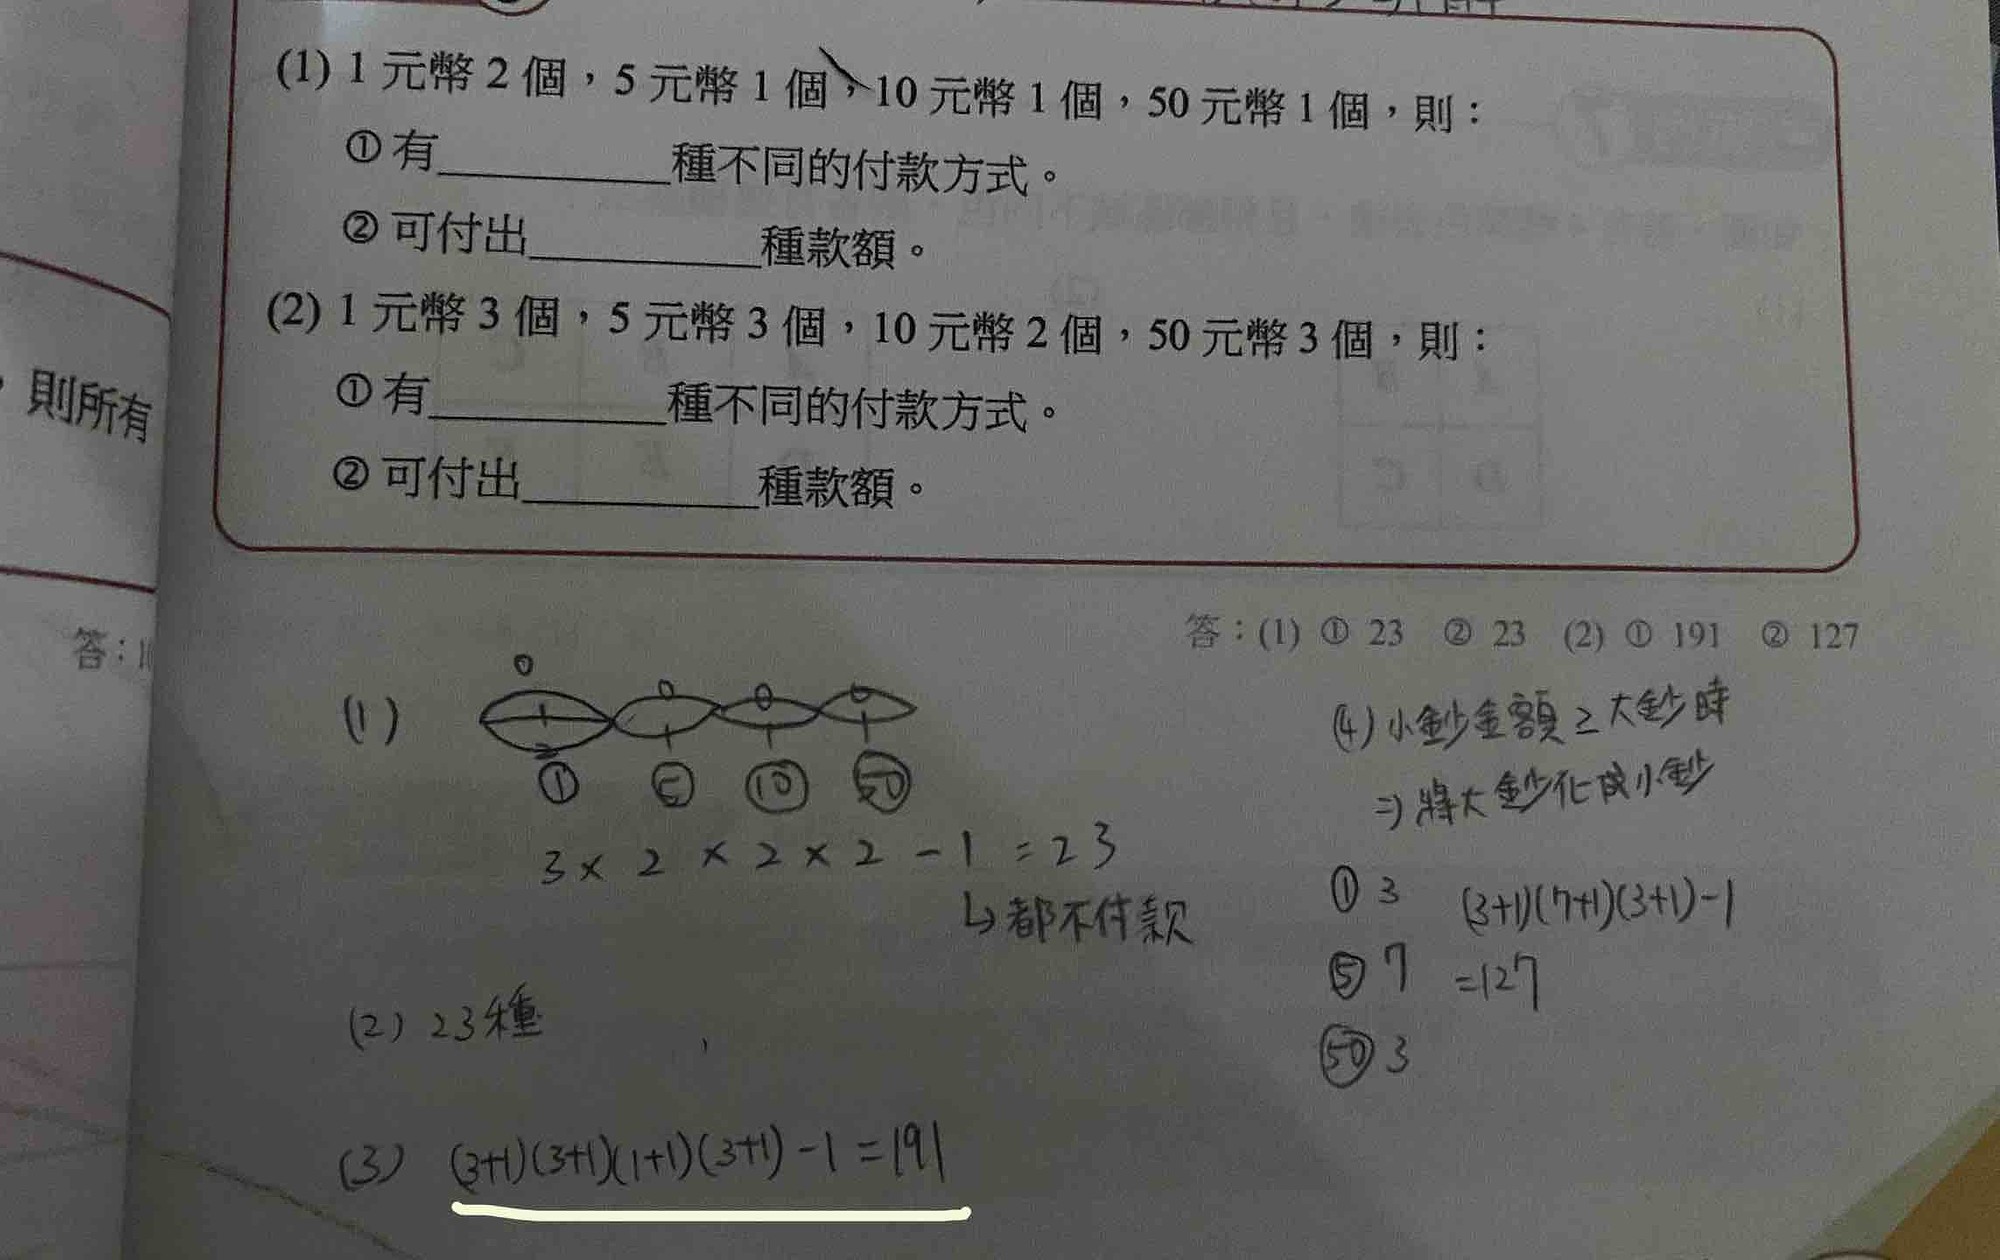 (1) 1 元幣 2 個，5 元幣 1 個，10 元幣 1 個，50 元幣 1 個，則：
① 有__________種不同的付款方式。
② 可付出__________種款額。
(2) 1 元幣 3 個，5 元幣 3 個，10 元幣 2 個，50 元幣 3 個，則：
① 有__________種不同的付款方式。
② 可付出__________種款額。
，則所有
答：
答：(1) ① 23 ② 23 (2) ① 191 ② 127
(1)
0 0 0 0
2
① ⑤ ⑩ ㊿
3 × 2 × 2 × 2 - 1 = 23
↳ 都不付款
(2) 23種
(3) (3+1)(3+1)(1+1)(3+1) - 1 = 191
(4) 小鈔金額 ≥ 大鈔時
⇒ 將大鈔化成小鈔
① 3 (3+1)(7+1)(3+1)-1
⑤ 7 =127
㊿ 3